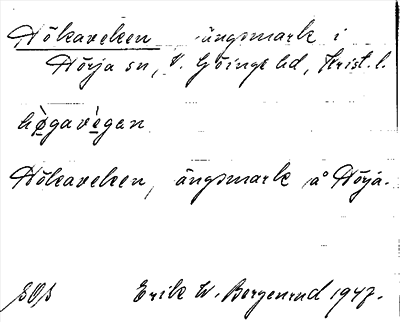 Hökaveken ängsmark i
Hörja sn, V. Göinge hd, Krist. l.
hø̀gavè̱gan
Hökaveken, ängsmark å Hörja.
SOS Erik W. Bergenrud 1947.